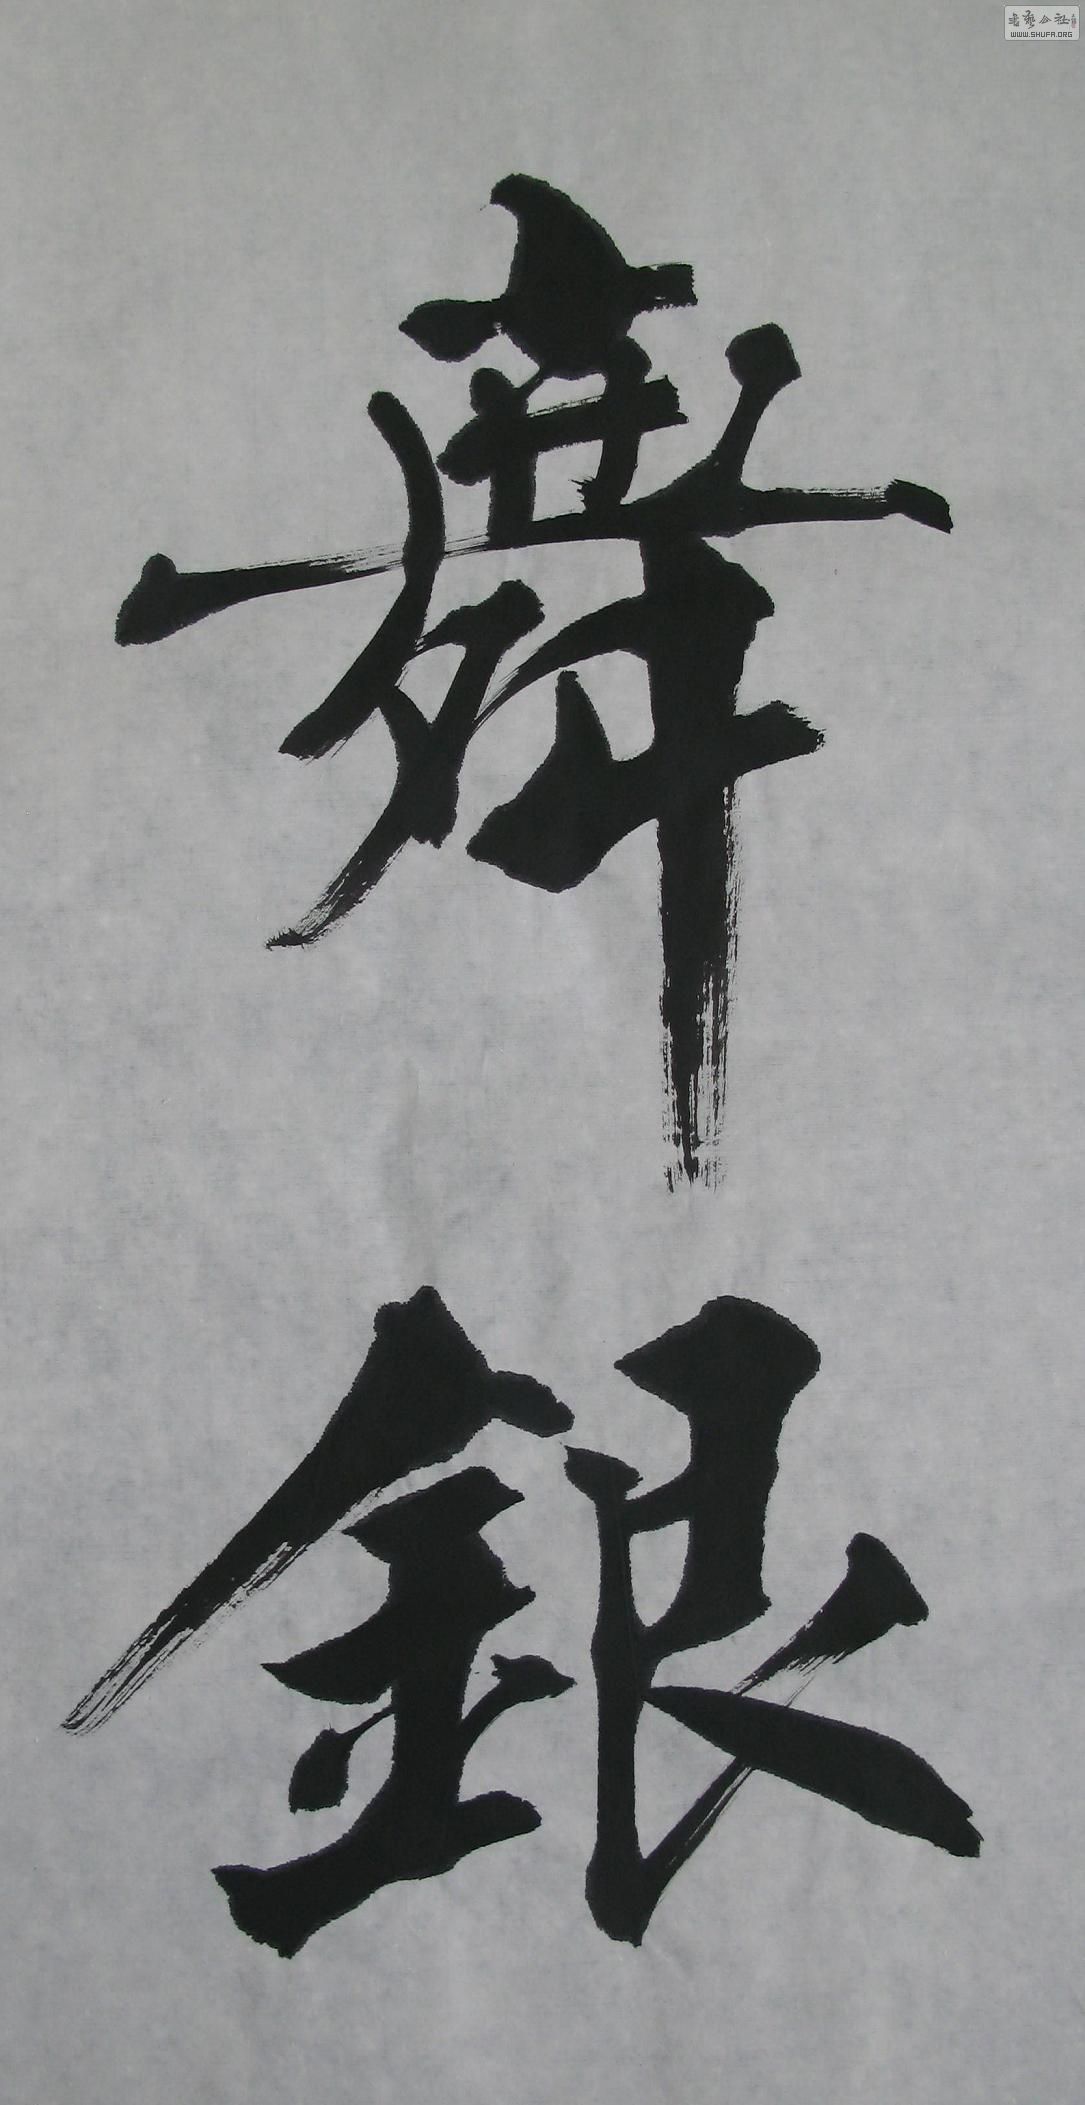 舞
銀
书艺公社
WWW.SHUFA.ORG